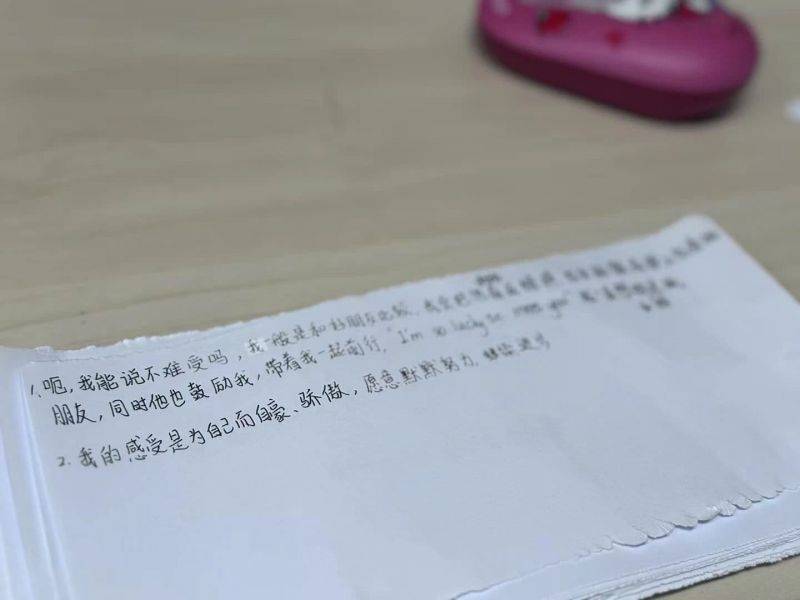 1. 呃，我能说不难受吗，我一般是和好朋友比较，我会把
朋友，同时他也鼓励我，带着我一起前行，"I'm so lucky to meet you"
2. 我的感受是为自己而自豪、骄傲，愿意默默努力，继续进步